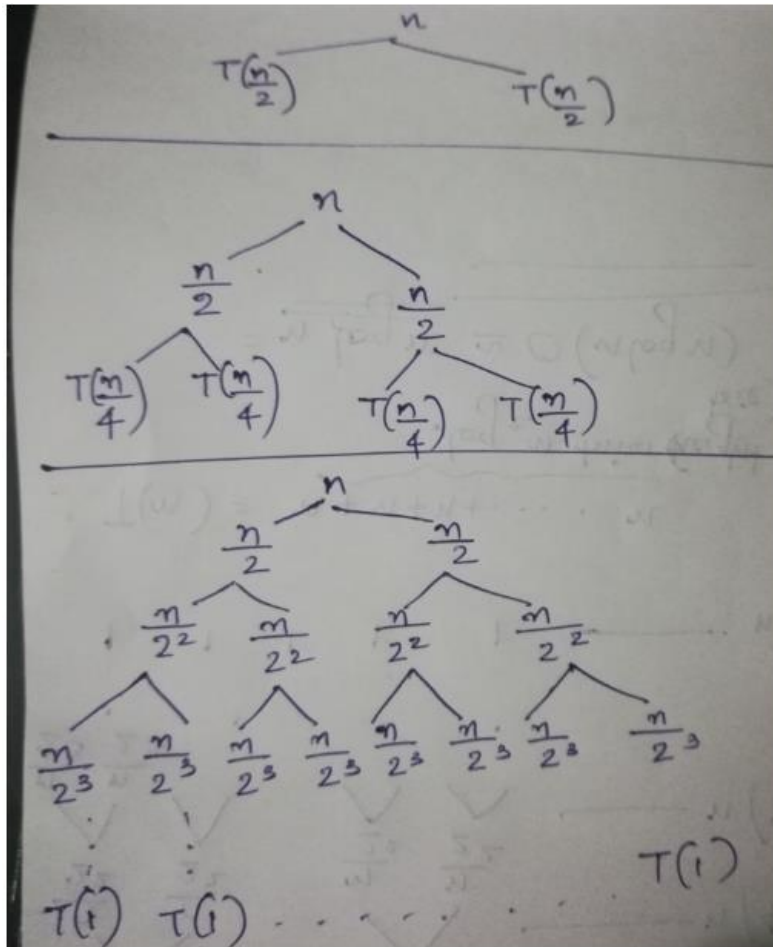 n
T(n/2) T(n/2)
n
n/2 n/2
T(n/4) T(n/4) T(n/4) T(n/4)
n
n/2 n/2
n/2² n/2² n/2² n/2²
n/2³ n/2³ n/2³ n/2³ n/2³ n/2³ n/2³ n/2³
T(1) T(1) . . . . . . . . T(1)